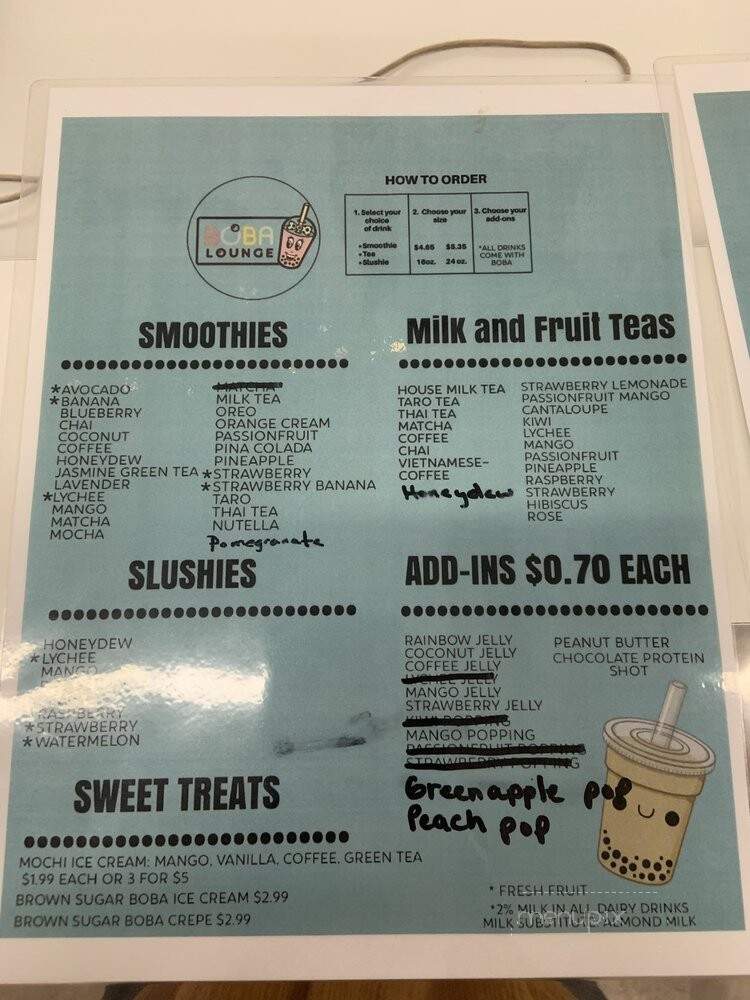 BOBA
LOUNGE
HOW TO ORDER
1. Select your
choice
of drink
•Smoothie
•Tea
•Slushie
2. Choose your
size
$4.65 $5.35
16oz. 24oz.
3. Choose your
add-ons
*ALL DRINKS
COME WITH
BOBA
SMOOTHIES
*AVOCADO
*BANANA
BLUEBERRY
CHAI
COCONUT
COFFEE
HONEYDEW
JASMINE GREEN TEA
LAVENDER
*LYCHEE
MANGO
MATCHA
MOCHA
MATCHA
MILK TEA
OREO
ORANGE CREAM
PASSIONFRUIT
PINA COLADA
PINEAPPLE
*STRAWBERRY
*STRAWBERRY BANANA
TARO
THAI TEA
NUTELLA
Pomegranate
Milk and Fruit Teas
HOUSE MILK TEA
TARO TEA
THAI TEA
MATCHA
COFFEE
CHAI
VIETNAMESE-
COFFEE
Honeydew
STRAWBERRY LEMONADE
PASSIONFRUIT MANGO
CANTALOUPE
KIWI
LYCHEE
MANGO
PASSIONFRUIT
PINEAPPLE
RASPBERRY
STRAWBERRY
HIBISCUS
ROSE
SLUSHIES
HONEYDEW
*LYCHEE
MANGO
RASPBERRY
*STRAWBERRY
*WATERMELON
ADD-INS $0.70 EACH
RAINBOW JELLY
COCONUT JELLY
COFFEE JELLY
LYCHEE JELLY
MANGO JELLY
STRAWBERRY JELLY
KIWI POPPING
MANGO POPPING
PASSIONFRUIT POPPING
STRAWBERRY POPPING
Green apple pop
Peach pop
PEANUT BUTTER
CHOCOLATE PROTEIN
SHOT
SWEET TREATS
MOCHI ICE CREAM: MANGO, VANILLA, COFFEE, GREEN TEA
$1.99 EACH OR 3 FOR $5
BROWN SUGAR BOBA ICE CREAM $2.99
BROWN SUGAR BOBA CREPE $2.99
* FRESH FRUIT
*2% MILK IN ALL DAIRY DRINKS
MILK SUBSTITUTE ALMOND MILK
menupix